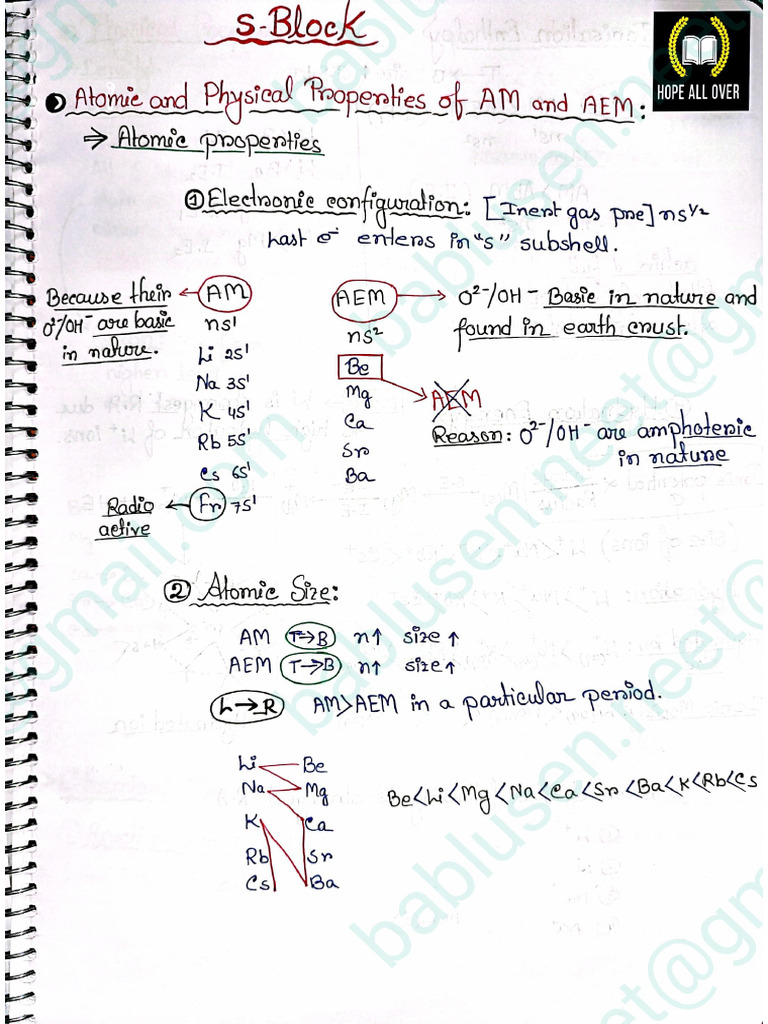 S-Block
HOPE ALL OVER
Atomic and Physical Properties of AM and AEM:
⇒ Atomic properties
① Electronic configuration: [Inert gas pre] ns¹/²
Last e⁻ enters in "s" subshell.
Because their ← AM
O²⁻/OH⁻ are basic
in nature.
ns¹
Li 2S¹
Na 3S¹
K 4S¹
Rb 5S¹
Cs 6S¹
Radio active ← Fr 7S¹
AEM → O²⁻/OH⁻ Basic in nature and
found in earth crust.
ns²
Be → AEM
Mg
Ca
Sr
Ba
Reason: O²⁻/OH⁻ are amphoteric
in nature
② Atomic Size:
AM T→B n↑ size↑
AEM T→B n↑ size↑
L→R AM>AEM in a particular period.
Li Be
Na Mg
K Ca
Rb Sr
Cs Ba
Be<Li<Mg<Na<Ca<Sr<Ba<K<Rb<Cs
bablusen.neet@gmail.com